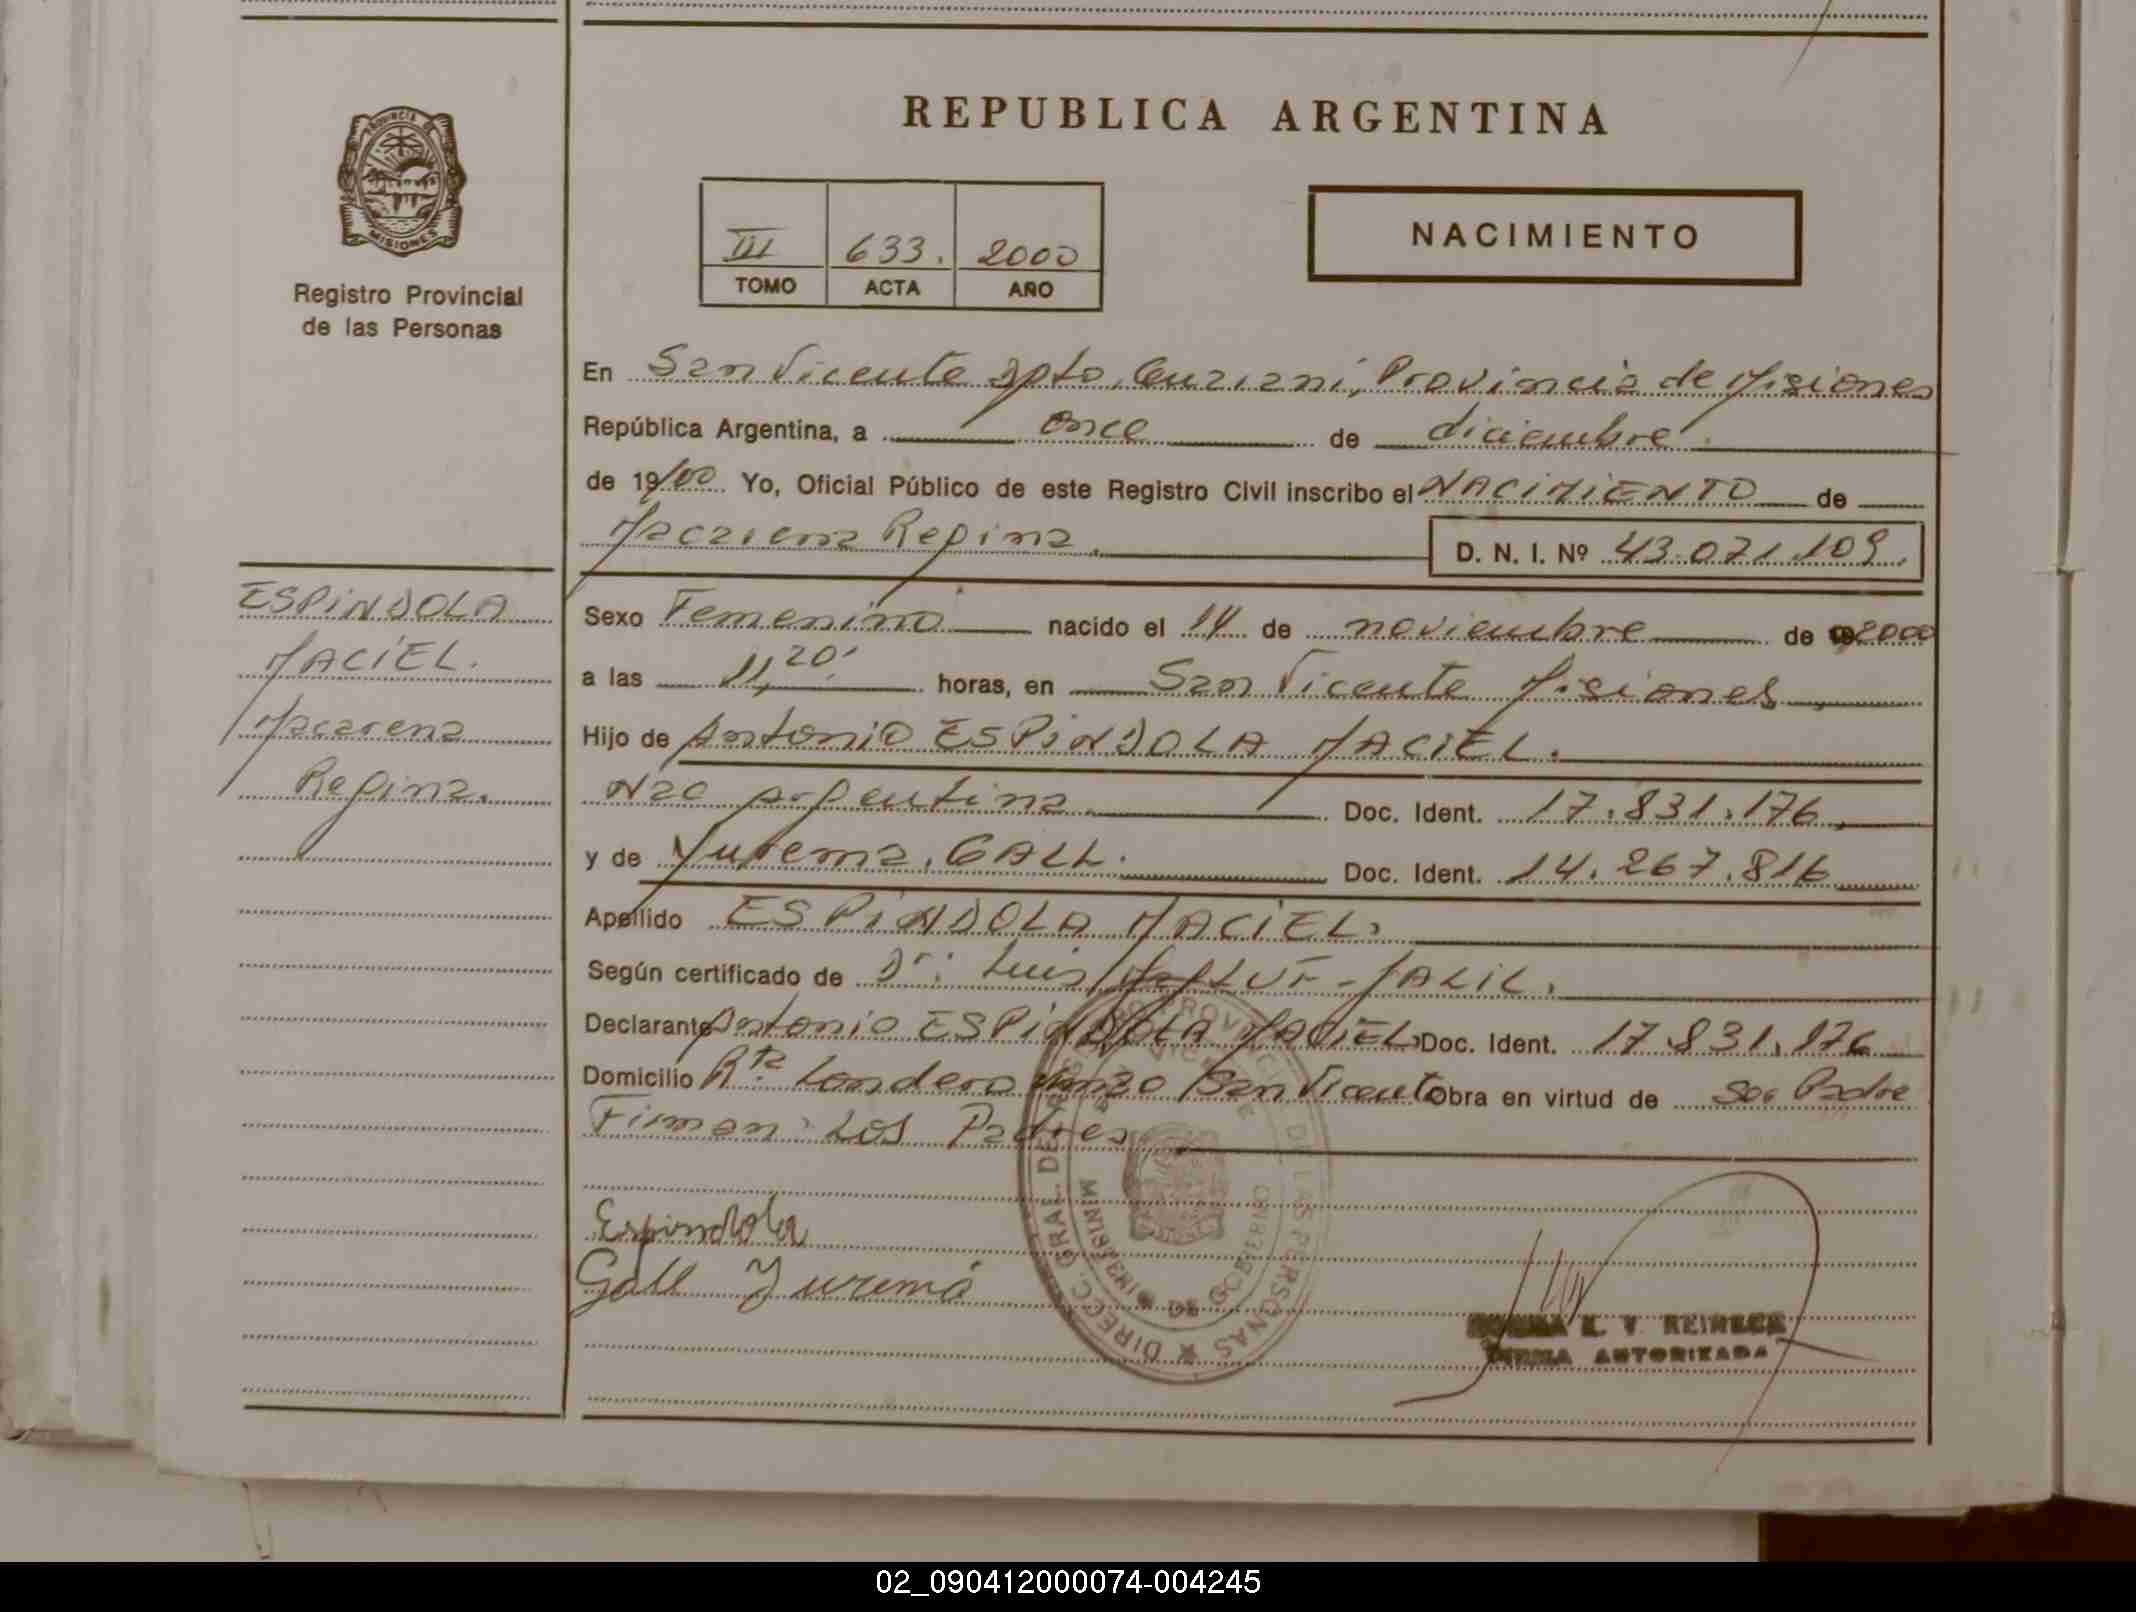 REPUBLICA ARGENTINA
PROVINCIA DE
MISIONES
Registro Provincial
de las Personas
III 633. 2000
TOMO ACTA AÑO
NACIMIENTO
En San Vicente Dpto. Guaraní, Provincia de Misiones
República Argentina, a once de diciembre.
de 19/00 Yo, Oficial Público de este Registro Civil inscribo el NACIMIENTO de
Macarena Regina. D. N. I. Nº 43.071.109.
ESPINDOLA
MACIEL.
Macarena
Regina.
Sexo Femenino nacido el 14 de noviembre de 2000
a las 11,20' horas, en San Vicente Misiones
Hijo de Antonio ESPINDOLA MACIEL.
Nac Argentina Doc. Ident. 17.831.176
y de Yurema. GALL. Doc. Ident. 14.267.816
Apellido ESPINDOLA MACIEL.
Según certificado de Dr: Luis JALIL.
Declarante Antonio ESPINDOLA MACIEL Doc. Ident. 17.831.176
Domicilio Rta Londero San Vicente Obra en virtud de Ser Padre
Firman: Los Padres
Espindola
Gall Yurema
DIRECC. GRAL. DE LAS PERSONAS
DE GOBIERNO
E. V. REINECK
FIRMA AUTORIZADA
02_090412000074-004245